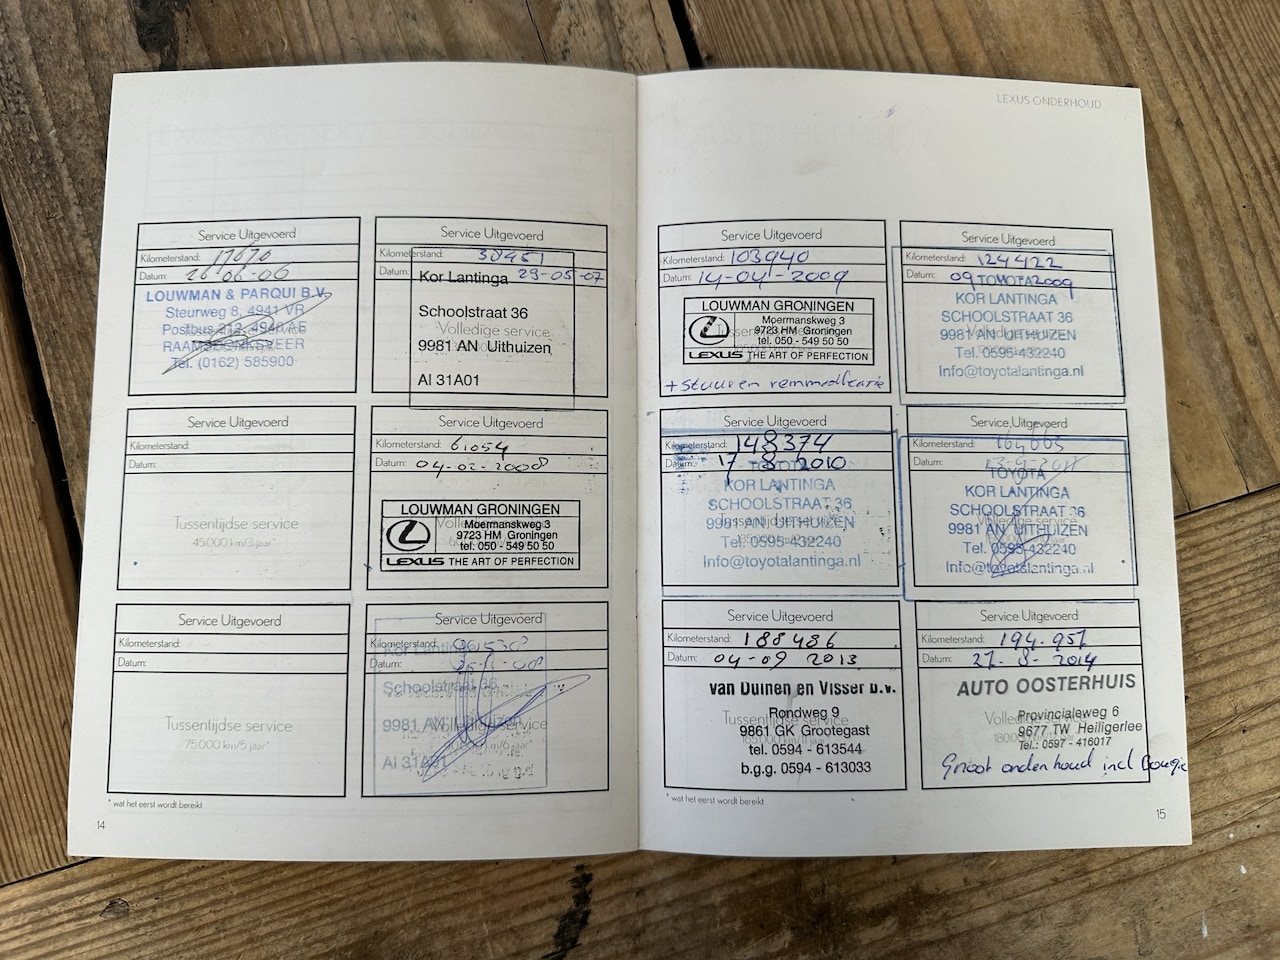 LEXUS ONDERHOUD
Service Uitgevoerd
Kilometerstand: 17670
Datum: 26-06-06
LOUWMAN & PARQUI B.V.
Steurweg 8, 4941 VR
Postbus 212, 4940 AE
RAAMSDONKSVEER
Tel. (0162) 585900
Service Uitgevoerd
Kilometerstand: 38451
Datum: 29-05-07
Kor Lantinga
Schoolstraat 36
Volledige service
9981 AN Uithuizen
AI 31A01
Service Uitgevoerd
Kilometerstand:
Datum:
Tussentijdse service
45.000 km/3 jaar*
Service Uitgevoerd
Kilometerstand: 61054
Datum: 04-02-2008
LOUWMAN GRONINGEN
Moermanskweg 3
9723 HM Groningen
tel. 050 - 549 50 50
LEXUS THE ART OF PERFECTION
Service Uitgevoerd
Kilometerstand:
Datum:
Tussentijdse service
75.000 km/5 jaar*
Service Uitgevoerd
Kilometerstand:
Datum:
Kor Lantinga
Schoolstraat 36
9981 AN Uithuizen
Volledige service
AI 31A01
* wat het eerst wordt bereikt
14
Service Uitgevoerd
Kilometerstand: 103940
Datum: 14-04-2009
LOUWMAN GRONINGEN
Moermanskweg 3
9723 HM Groningen
tel. 050 - 549 50 50
LEXUS THE ART OF PERFECTION
+ stuur en remmodificatie
Service Uitgevoerd
Kilometerstand: 124422
Datum: 09 2009
TOYOTA
KOR LANTINGA
SCHOOLSTRAAT 36
9981 AN UITHUIZEN
Tel. 0595-432240
Info@toyotalantinga.nl
Service Uitgevoerd
Kilometerstand: 148374
Datum: 17 8 2010
TOYOTA
KOR LANTINGA
SCHOOLSTRAAT 36
9981 AN UITHUIZEN
Tussentijdse service
Tel. 0595-432240
Info@toyotalantinga.nl
Service Uitgevoerd
Kilometerstand:
Datum:
TOYOTA
KOR LANTINGA
SCHOOLSTRAAT 36
9981 AN UITHUIZEN
Tel. 0595-432240
Info@toyotalantinga.nl
Service Uitgevoerd
Kilometerstand: 188486
Datum: 04-09 2013
van Duinen en Visser B.V.
Rondweg 9
Tussentijdse service
9861 GK Grootegast
tel. 0594 - 613544
b.g.g. 0594 - 613033
Service Uitgevoerd
Kilometerstand: 194.957
Datum: 27-8-2014
AUTO OOSTERHUIS
Provincialeweg 6
9677 TW Heiligerlee
Tel.: 0597 - 416017
Groot onderhoud incl Bougie
* wat het eerst wordt bereikt
15